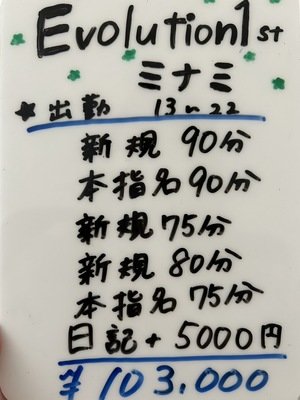 Evolution 1st
ミナミ
★出勤 13〜22
新規 90分
本指名 90分
新規 75分
新規 80分
本指名 75分
日記 + 5000円
¥103,000